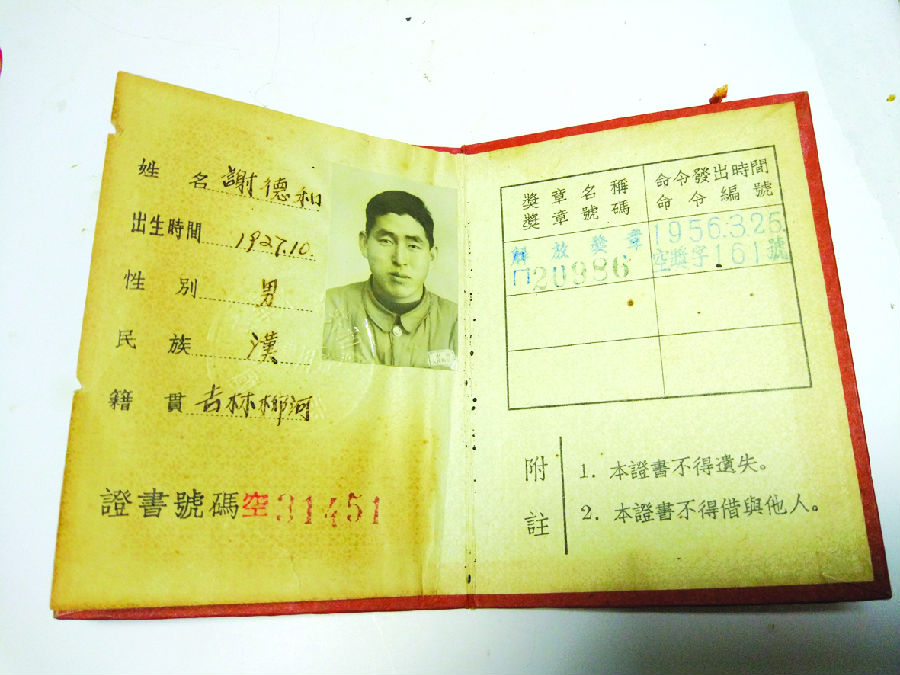 姓 名 謝德和
出生時間 1927.10.
性 別 男
民 族 漢
籍 貫 吉林柳河
證書號碼 空31451
獎章名稱 命令發出時間
獎章號碼 命令編號
解放獎章 1956.3.25.
20986 空獎字161號
附註
1. 本證書不得遺失。
2. 本證書不得借與他人。